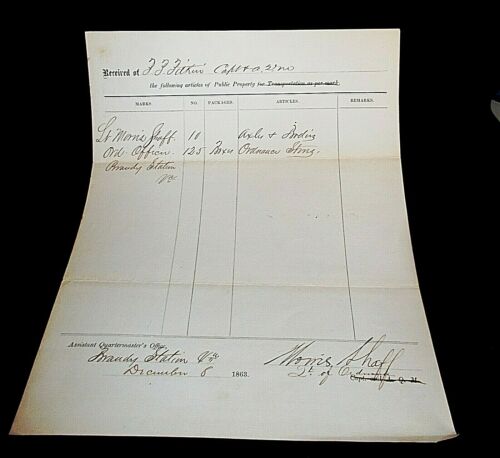 Received of Capt & A. Q. M.
the following articles of Public Property for Transportation as per mark.
MARKS. NO. PACKAGES. ARTICLES. REMARKS.
Lt Morris Schaff 10 Axles &
Ord. Officer 125 Boxes Ordnance
Brandy Station
Va
Assistant Quartermaster's Office,
Brandy Station Va
December 8 1863.
Morris Schaff
Lt of Ord
Capt. & A. Q. M.